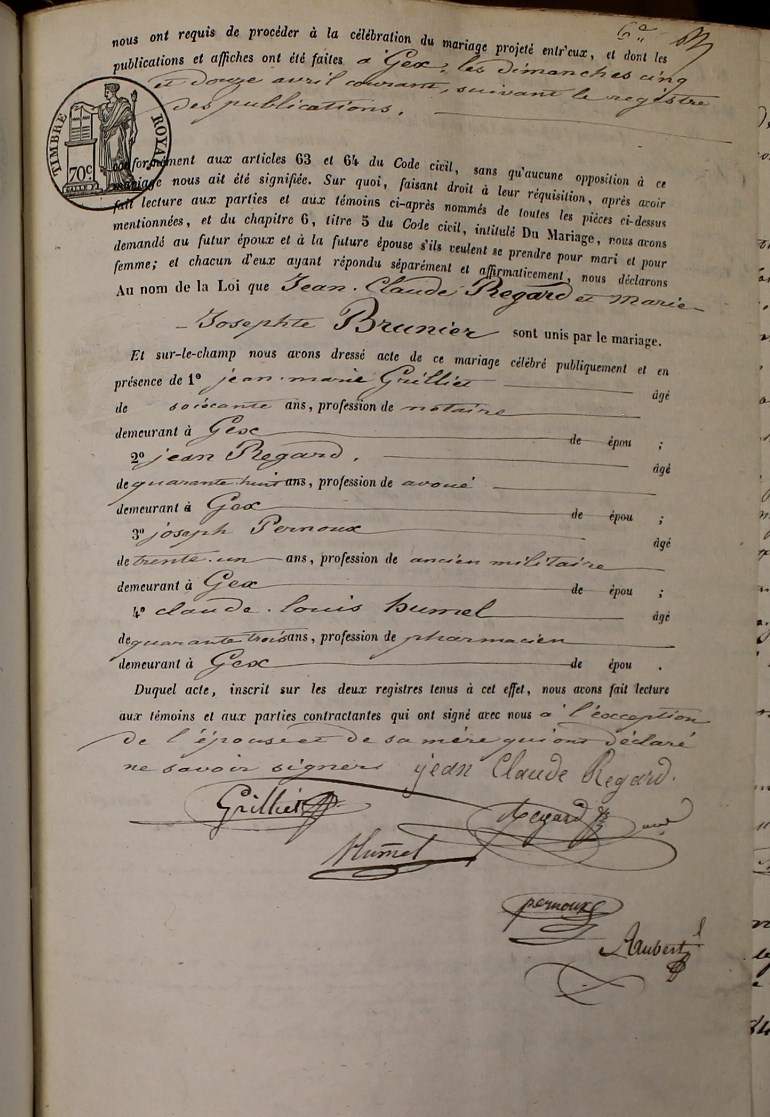 6e
nous ont requis de procéder à la célébration du mariage projeté entr'eux, et dont les
publications et affiches ont été faites à Gex, les dimanches cinq
et douze avril courant, suivant le registre
des publications.
TIMBRE ROYAL
70c
conformément aux articles 63 et 64 du Code civil, sans qu'aucune opposition à ce
mariage nous ait été signifiée. Sur quoi, faisant droit à leur réquisition, après avoir
fait lecture aux parties et aux témoins ci-après nommés de toutes les pièces ci-dessus
mentionnées, et du chapitre 6, titre 5 du Code civil, intitulé Du Mariage, nous avons
demandé au futur époux et à la future épouse s'ils veulent se prendre pour mari et pour
femme; et chacun d'eux ayant répondu séparément et affirmaticement, nous déclarons
Au nom de la Loi que Jean-Claude Regard et Marie-
-Josephte Brunier sont unis par le mariage.
Et sur-le-champ nous avons dressé acte de ce mariage célébré publiquement et en
présence de 1º jean-marie Grilliet âgé
de soixante ans, profession de notaire
demeurant à Gex de épou ;
2º jean Regard. âgé
de quarante-huit ans, profession de avoué
demeurant à Gex de épou ;
3º joseph Pernoux âgé
de trente-un ans, profession de ancien militaire
demeurant à Gex de épou ;
4º claude-louis humel âgé
de quarante trois ans, profession de pharmacien
demeurant à Gex de épou .
Duquel acte, inscrit sur les deux registres tenus à cet effet, nous avons fait lecture
aux témoins et aux parties contractantes qui ont signé avec nous à l'exception
de l'épouse et de sa mère qui ont déclaré
ne savoir signer. jean Claude Regard.
Grilliet Regard
Humel
pernoux
Aubert